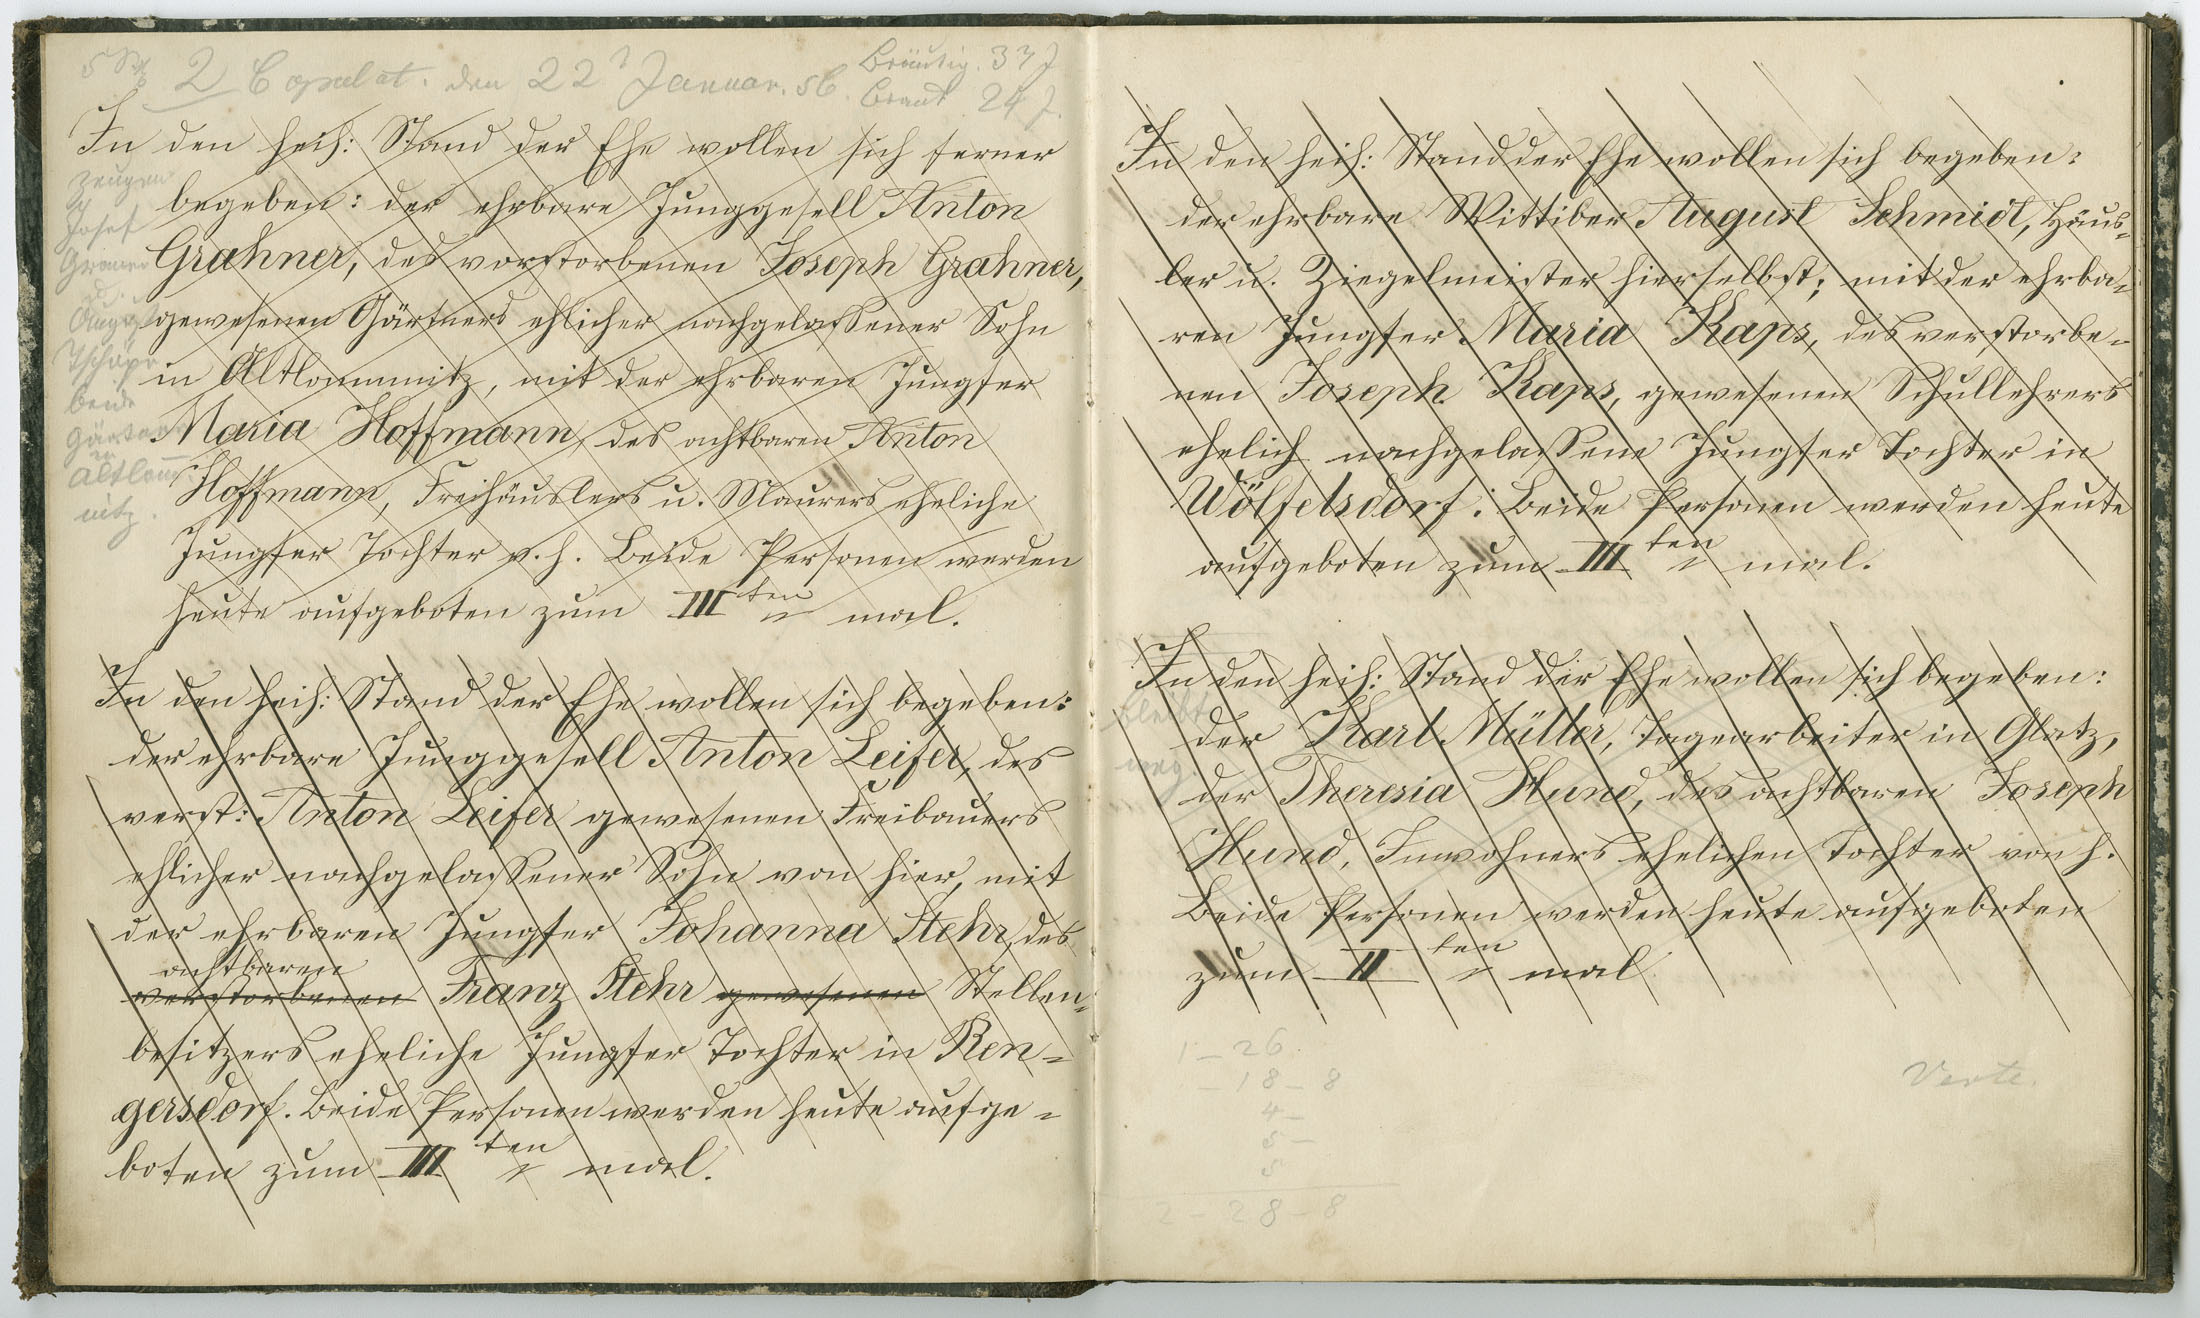 2 Copulat. den 22t Januar. 56. Bräutig. 33 J
Braut 24 J.
In den heil: Stand der Ehe wollen sich ferner
begeben: der ehrbare Junggesell Anton
Grahner, des verstorbenen Joseph Grahner,
gewesenen Gärtners ehlicher nachgelassener Sohn
in Altlommnitz, mit der ehrbaren Jungfer
Maria Hoffmann, des achtbaren Anton
Hoffmann, Freihäuslers u. Maurers eheliche
Jungfer Tochter v. h. Beide Personen werden
heute aufgeboten zum III ten mal.
Zeugen
Josef
Gräner
August
Tschöpe
beide
Gärtner
in
Altlom̅
nitz.
In den heil: Stand der Ehe wollen sich begeben:
der ehrbare Junggesell Anton Leifer, des
verst: Anton Leifer gewesenen Freibauers
ehlicher nachgelassener Sohn von hier, mit
der ehrbaren Jungfer Johanna Stehr, des
achtbaren
verstorbenen Franz Stehr gewesenen Stellen=
besitzers eheliche Jungfer Tochter in Ren=
gersdorf. Beide Personen werden heute aufge=
boten zum III ten mal.
In den heil: Stand der Ehe wollen sich begeben:
der ehrbare Wittiber August Schmidt, Häus=
ler u. Ziegelmeister hierselbst; mit der ehrba=
ren Jungfer Maria Kaps, des verstorbe=
nen Joseph Kaps, gewesenen Schullehrers
ehelich nachgelassene Jungfer Tochter in
Wölfelsdorf. Beide Personen werden heute
aufgeboten zum III ten mal.
In den heil: Stand der Ehe wollen sich begeben:
der Karl Müller, Tagearbeiter in Glatz,
der Theresia Hund, des achtbaren Joseph
Hund, Inwohners ehelichen Tochter von h.
Beide Personen werden heute aufgeboten
zum II ten mal
bleibt
weg.
1 – 26
– 18 – 8
4 –
5 –
5
2 – 28 – 8
Verte.